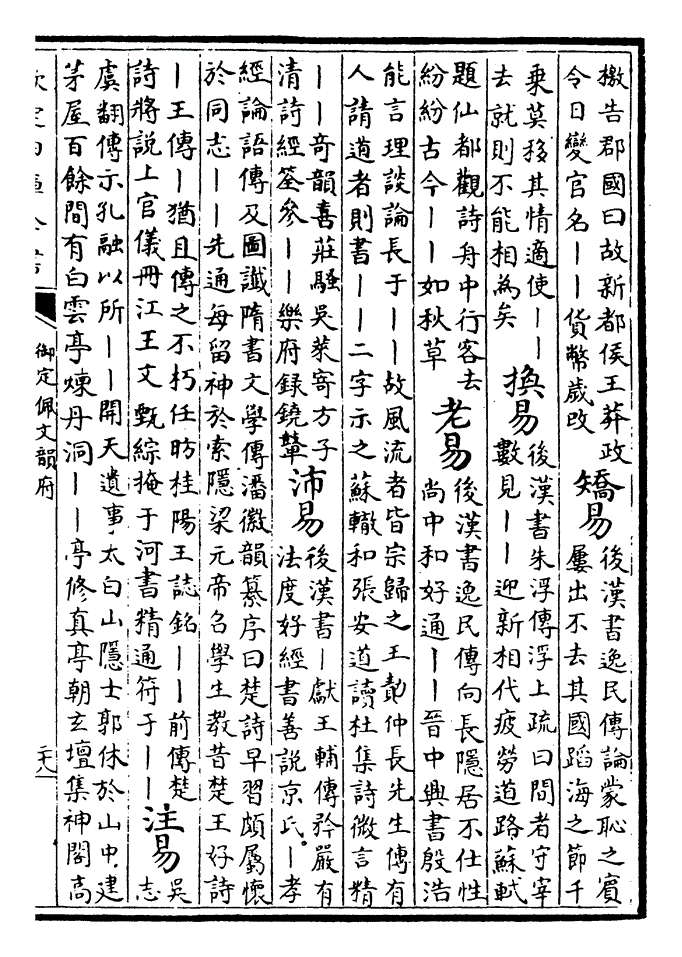 檄告郡國曰故新都侯王莽政
令日變官名——貨幣歲改
矯易
後漢書逸民傳論蒙恥之賓
屢出不去其國蹈海之節千
乗莫移其情適使——
去就則不能相為矣
換易
後漢書朱浮傳浮上疏曰間者守宰
數見——迎新相代疲勞道路蘇軾
題仙都觀詩舟中行客去
紛紛古今——如秋草
老易
後漢書逸民傳向長隱居不仕性
尚中和好通——晉中興書殷浩
能言理談論長于——故風流者皆宗歸之王勣仲長先生傳有
人請道者則書——二字示之蘇轍和張安道讀杜集詩微言精
——奇韻喜莊騷吳萊寄方子
清詩經筌參——樂府録鐃鞞
沛易
後漢書—獻王輔傳矜嚴有
法度好經書善説京氏—孝
經論語傳及圖讖隋書文學傳潘徽韻纂序曰楚詩早習頗屬懷
於同志——先通每留神於索隱梁元帝召學生教昔楚王好詩
—王傳—猶且傳之不朽任昉桂陽王誌銘——前傳楚
詩將説上官儀冊江王文甄綜掩于河書精通符于——
注易
吳
志
虞翻傳示孔融以所——開天遺事太白山隱士郭休於山中建
茅屋百餘間有白雲亭煉丹洞——亭修真亭朝玄壇集神閣高
欽定四庫全書
御定佩文韻府
二十八